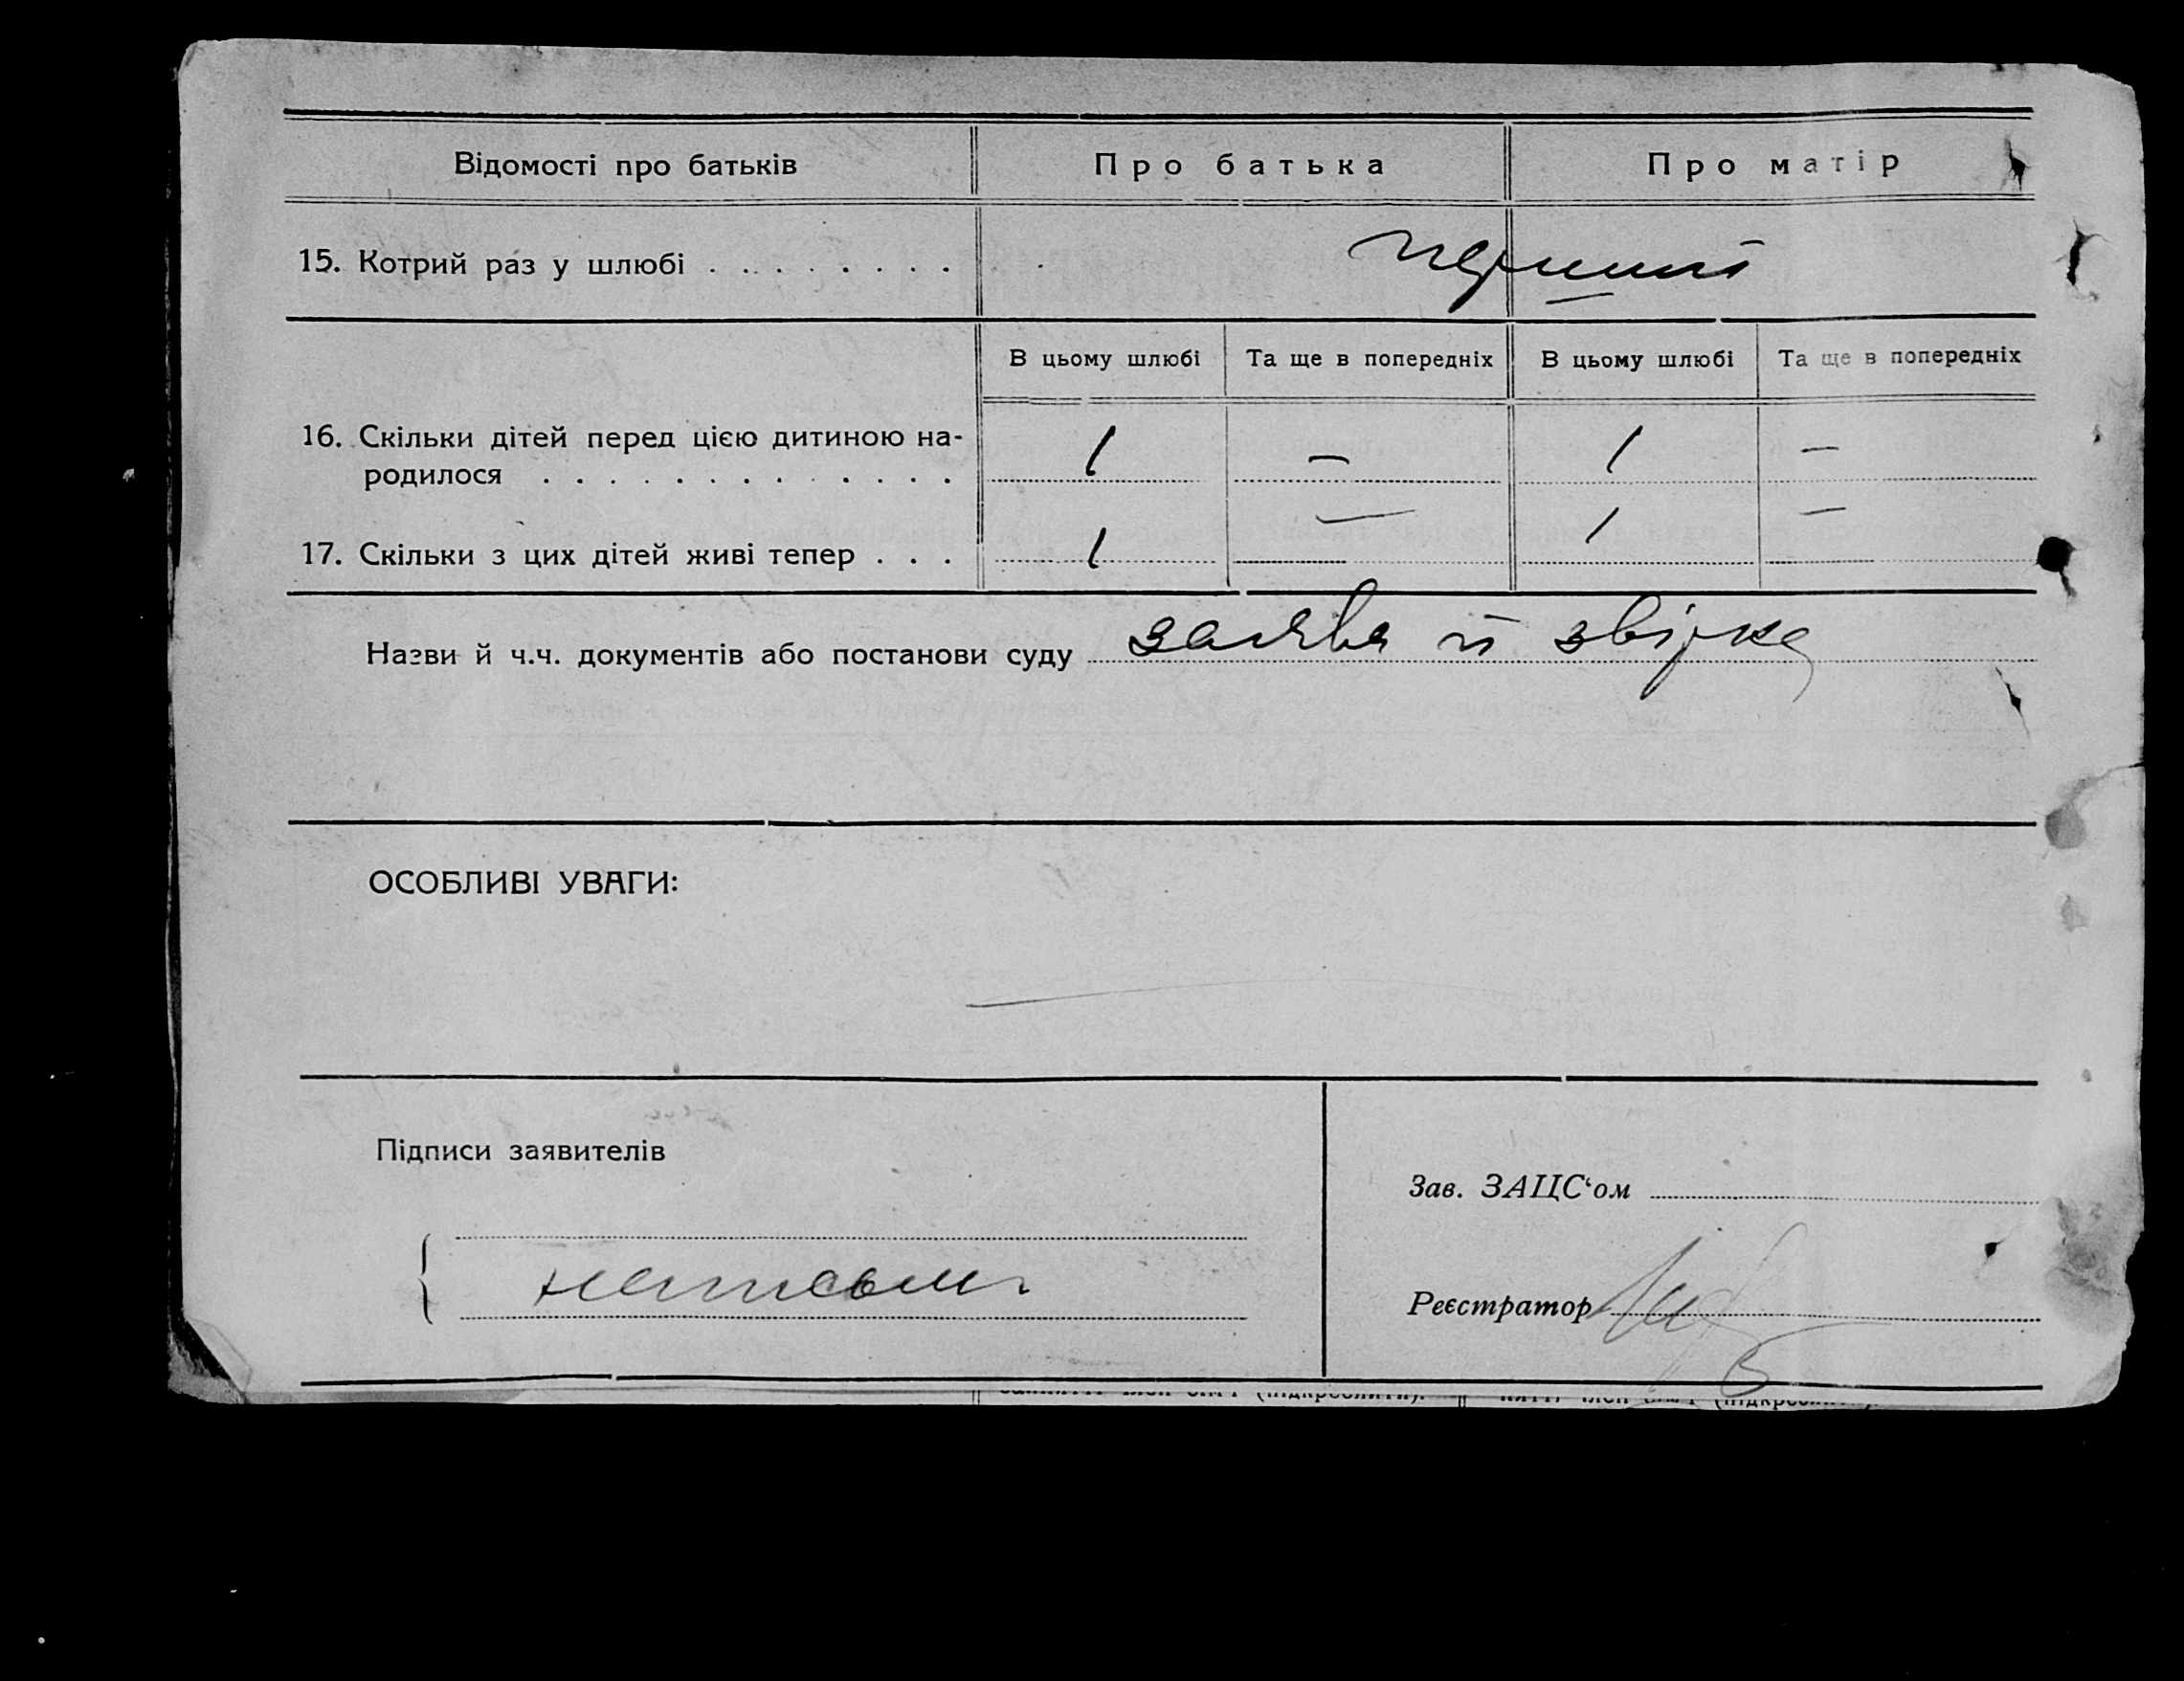 Відомості про батьків Про батька Про матір
15. Котрий раз у шлюбі . . . . . . . . перший
В цьому шлюбі Та ще в попередніх В цьому шлюбі Та ще в попередніх
16. Скільки дітей перед цією дитиною на-
родилося . . . . . . . . . . . . . 1 — 1 —
17. Скільки з цих дітей живі тепер . . . 1 — 1 —
Назви й ч.ч. документів або постанови суду заява й звірка
ОСОБЛИВІ УВАГИ:
Підписи заявителів
Зав. ЗАЦС‘ом
неписьм.
Реєстратор
(підкреслити). (підкреслити).